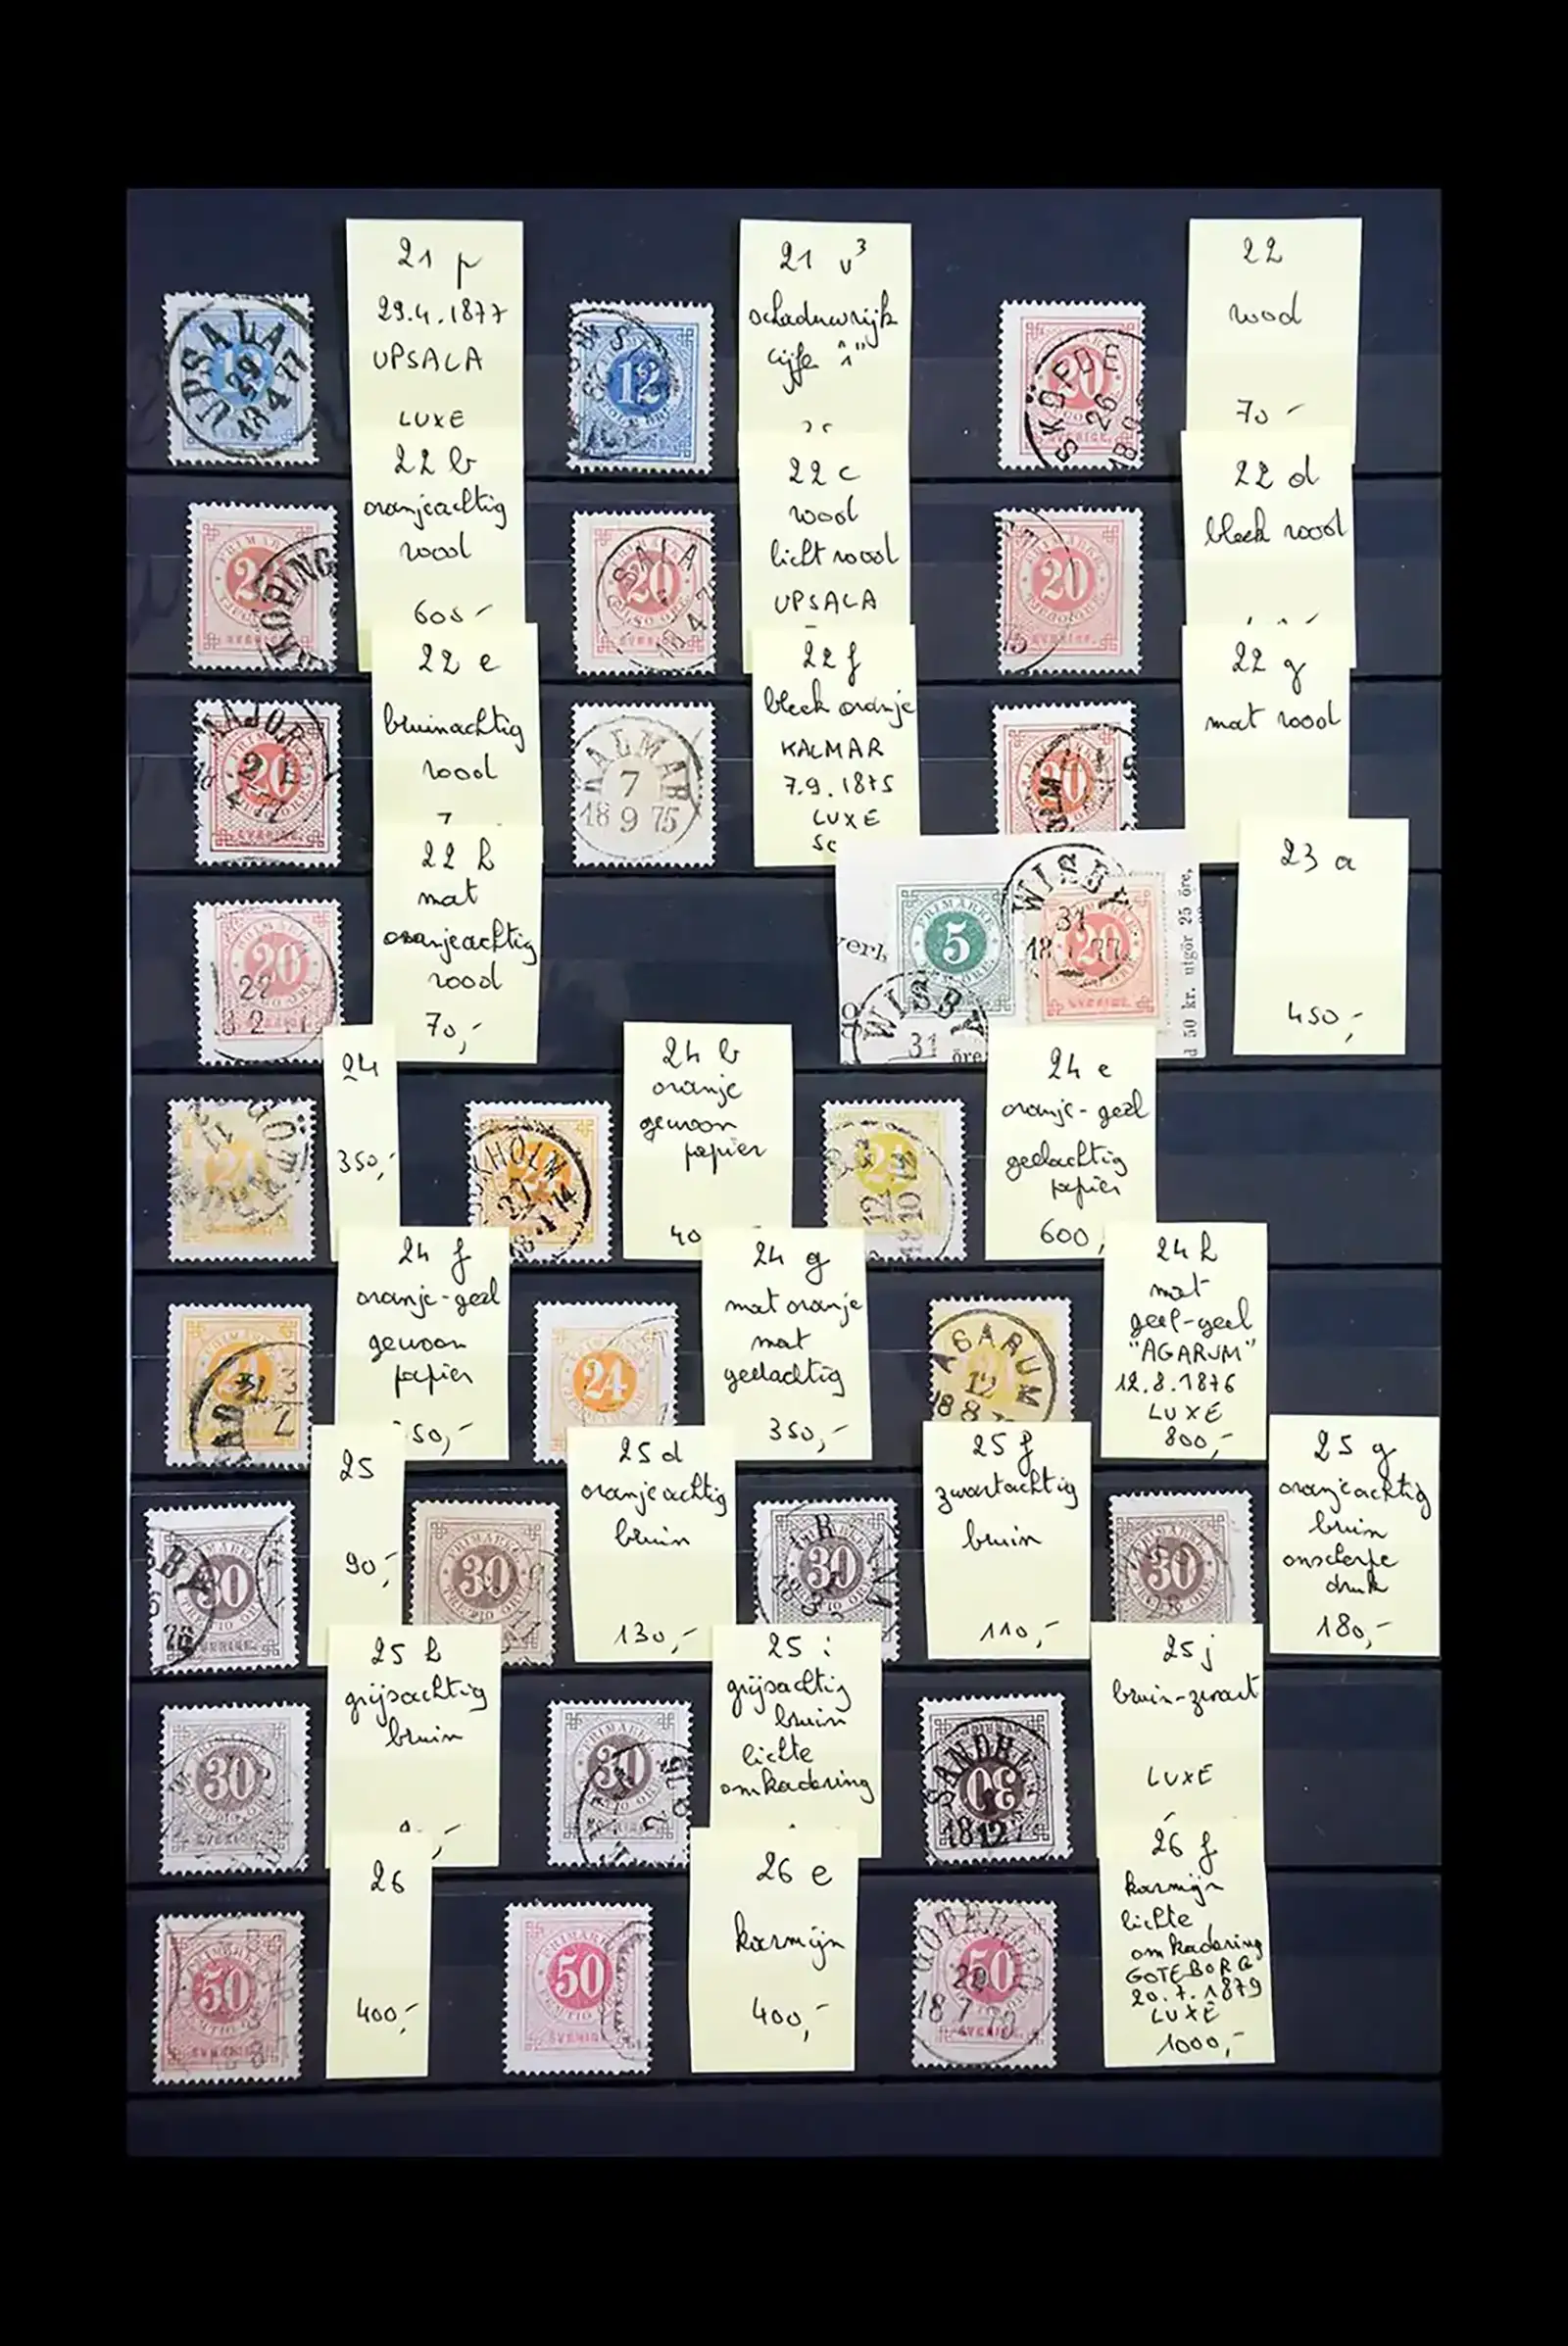 21 p
29.4.1877
UPSALA
LUXE
UPSALA
29
18 4 77
21 v³
schaduwrijk
cijfer "1"
12
22
rood
70,-
SKÖFDE
26
20
SVERIGE
22 b
oranjeachtig
rood
600,-
KÖPING
22 c
rood
licht rood
UPSALA
SALA
20
22 d
bleek rood
20
22 e
bruinachtig
rood
MAJOR
20
SVERIGE
22 f
bleek oranje
KALMAR
7.9.1875
LUXE
KALMAR
7
18 9 75
22 g
mat rood
20
22 h
mat
oranjeachtig
rood
70,-
20
22
verk
PRIMÄRKE
5
WISBY
31
18 1 77
20
SVERIGE
WISBY
31
öre
d 50 kr. utgör 25 öre,
23 a
450,-
24
350,-
24
11
24 b
oranje
gewoon
papier
40
KHOLM
24 e
oranje-geel
geelachtig
papier
600,
24
12
10
24 f
oranje-geel
gewoon
papier
50,-
24
24 g
mat oranje
mat
geelachtig
350,-
24
24 h
mat
geel-geel
"AGARUM"
12.8.1876
LUXE
800,-
AGARUM
12
18 8
25
90,-
30
25 d
oranjeachtig
bruin
130,-
PRIMÄRKE
30
25 f
zwartachtig
bruin
110,-
30
25 g
oranjeachtig
bruin
onscherpe
druk
180,-
30
25 h
grijsachtig
bruin
30
25 i
grijsachtig
bruin
lichte
omkadering
30
25 j
bruin-zwart
LUXE
SANDH
30
1812
26
400,-
50
SVERIGE
26 e
karmijn
400,-
PRIMÄRKE
50
SVERIGE
26 f
karmijn
lichte
omkadering
GOTEBORG
20.7.1879
LUXE
1000,-
GÖTEBORG
50
20
18 7 79
SVERIGE